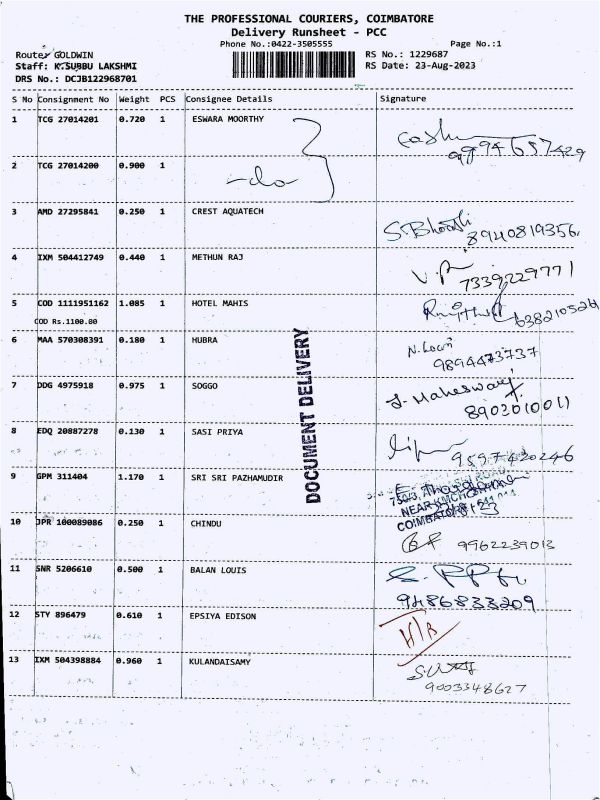 THE PROFESSIONAL COURIERS, COIMBATORE
Delivery Runsheet - PCC
Phone No.:0422-3505555 Page No.:1
Route: GOLDWIN RS No.: 1229687
Staff: K.SUBBU LAKSHMI RS Date: 23-Aug-2023
DRS No.: DCJB122968701
S No Consignment No Weight PCS Consignee Details Signature
1 TCG 27014201 0.720 1 ESWARA MOORTHY
2 TCG 27014200 0.900 1 -do-
3 AMD 27295841 0.250 1 CREST AQUATECH
8940819356
4 IXM 504412749 0.440 1 METHUN RAJ
7339229771
5 COD 1111951162 1.085 1 HOTEL MAHIS
COD Rs.1100.00
6 MAA 570308391 0.180 1 HUBRA
9894473737
7 DDG 4975918 0.975 1 SOGGO J. Maheswari
8903010011
8 EDQ 20887278 0.130 1 SASI PRIYA
9597420246
9 GPM 311404 1.170 1 SRI SRI PAZHAMUDIR
NEAR KMCH
COIMBATORE
10 JPR 100089086 0.250 1 CHINDU
9962239013
11 SNR 5206610 0.500 1 BALAN LOUIS
9486833209
12 STY 896479 0.610 1 EPSIYA EDISON
13 IXM 504398884 0.960 1 KULANDAISAMY
9003348627
DOCUMENT DELIVERY